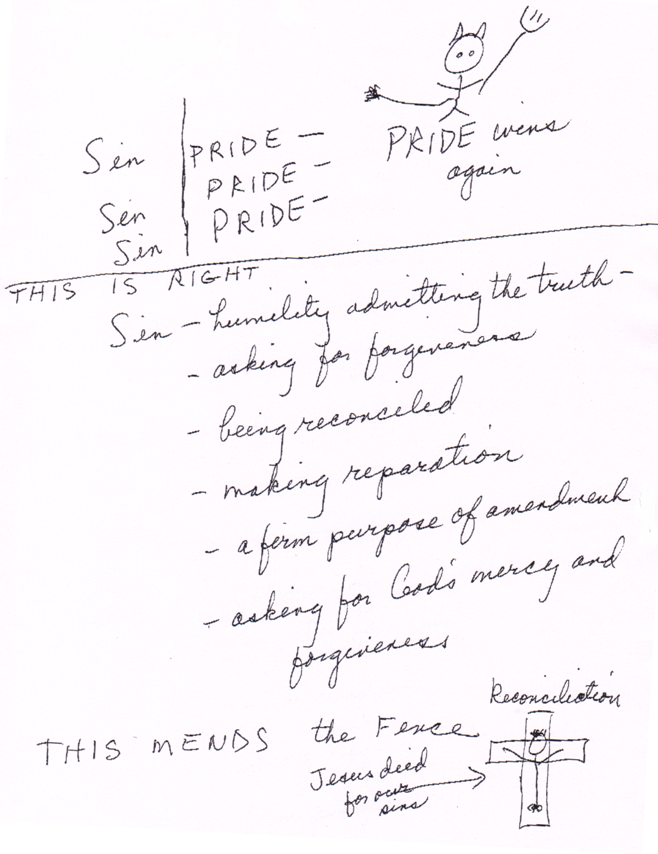 Sin PRIDE –
PRIDE –
Sin PRIDE –
Sin
PRIDE wins
again
THIS IS RIGHT
Sin – humility admitting the truth –
- asking for forgiveness
- being reconciled
- making reparation
- a firm purpose of amendment
- asking for God's mercy and
forgiveness
Reconciliation
THIS MENDS the Fence
Jesus died
for our
sins